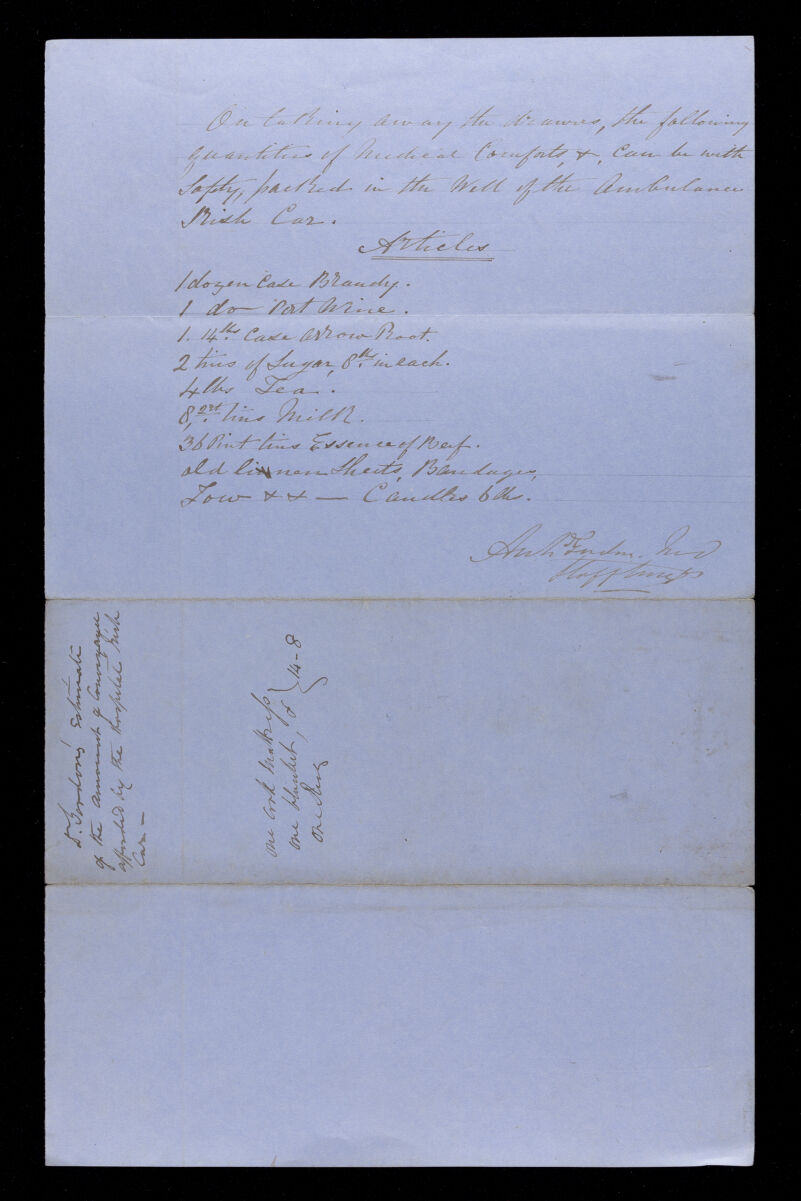 On taking away the drawers, the following
quantities of Medical Comforts, &, can be with
Safety, packed in the Well of the Ambulance
Irish Car.
Articles
1 dozen Case Brandy.
1 do Port Wine.
1. 14 lbs. Case Arrow Root.
2 tins of Sugar, 8 lbs. in each.
4 lbs Tea.
8, qrt. tins Milk.
36 Pint tins Essence of Beef.
old linnen Sheets, Bandages,
Tow & & — Candles 6 lbs.
Archd Gordon. MD
Staff Surg
Dr. Gordon's Estimate
of the amount of Conveyance
afforded by the Hospital Irish
Car —
One Cork Mattress
one blanket, &
One Rug
} 14-8